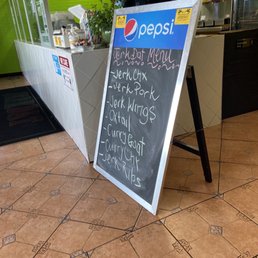 pepsi.
Jerk Pot Menu
-Jerk Chx
-Jerk Pork
-Jerk Wings
-Oxtail
-Curry Goat
-Curry Chx
-Jerk Ribs